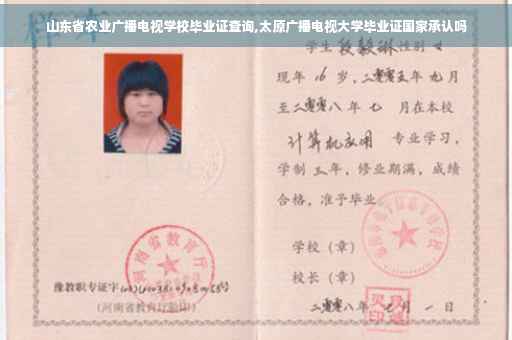 山东省农业广播电视学校毕业证查询,太原广播电视大学毕业证国家承认吗
学生 段毅琳 性别 女
现年 16 岁,二零零五年 九月
至二零零八年 七 月在本校
计算机应用 专业学习,
学制 三 年,修业期满,成绩
合格,准予毕业
学校(章)
校长(章)
豫教职专证字
(河南省教育厅验印)
二零零八年 七 月 一 日
河南省教育厅